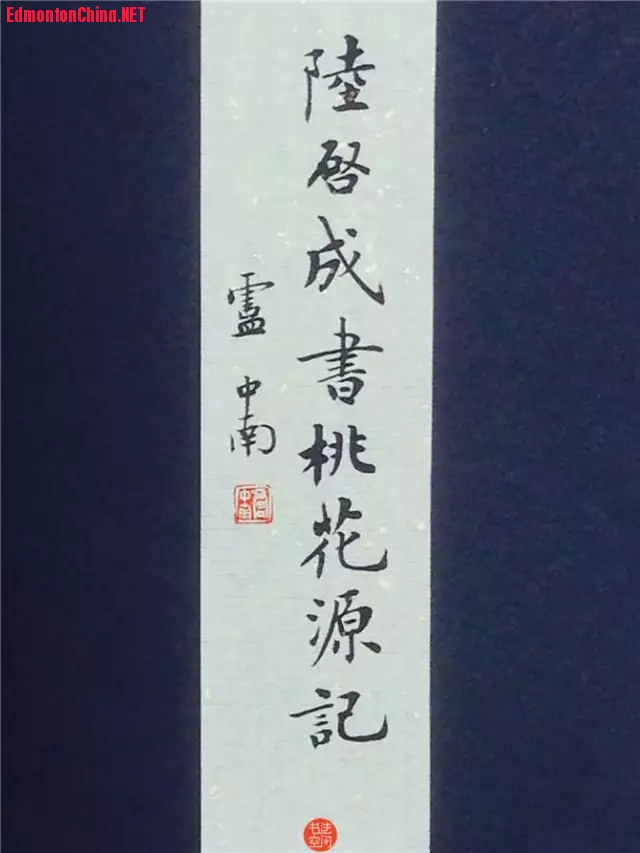 EdmontonChina.NET
陸啓成書桃花源記
盧中南